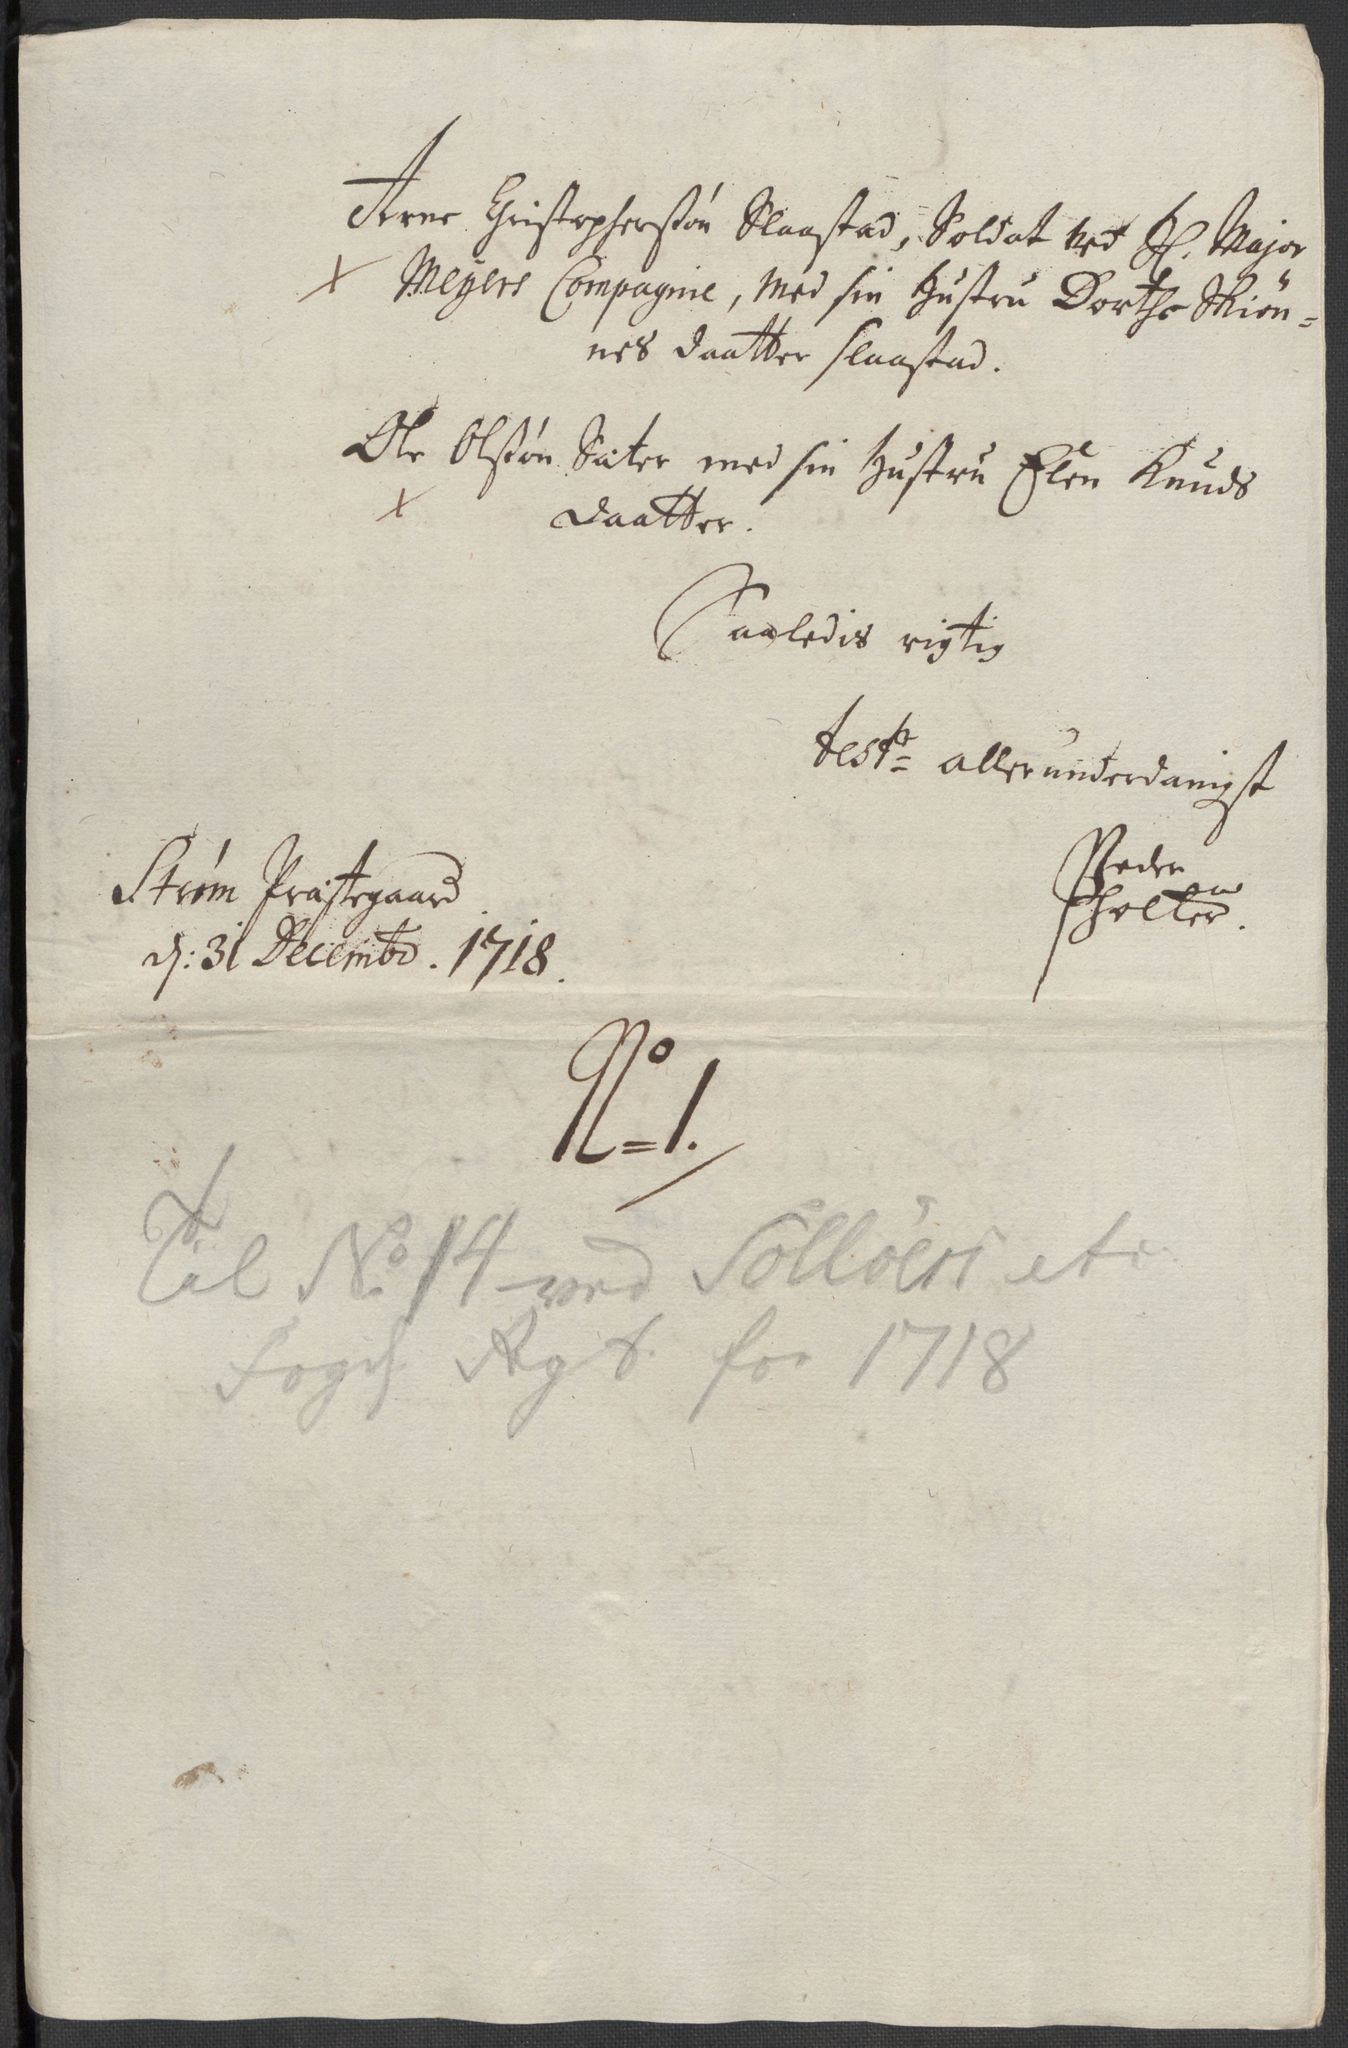 Arne Christophersøn Slaastad, Soldat ved H. Major
x Meyers Compagnie, med sin Hustru Dorthe Skiön=
nes daatter slaastad.
Ole Olsøn Säter med sin Hustru Elen Knuds
x daatter.
Saaledis rigtig
test allerunderdanigst
Strøm Præstegaard
Peder
Holter.
d: 31 Decembr. 1718.
No= 1.
Til No 14 ved Solløers etc
Fogd. Rgb. for 1718